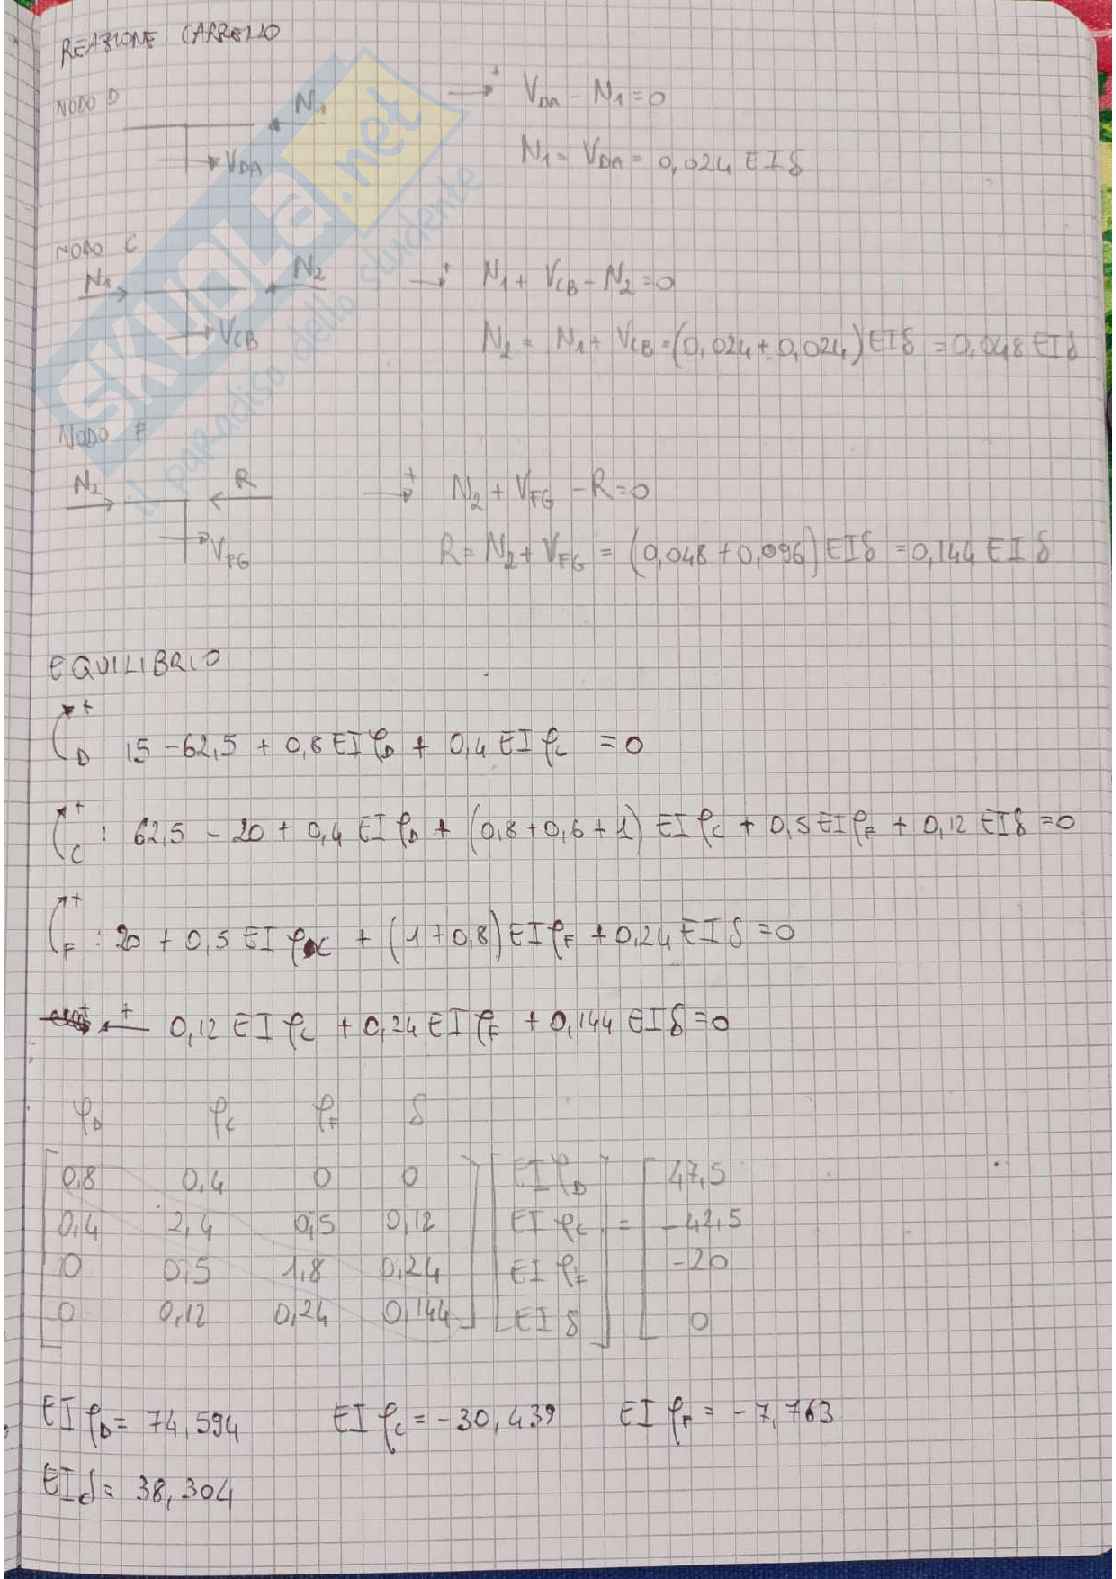 REAZIONE CARRELLO
NODO D
N₁
V_DA
→+ V_DA - N₁ = 0
N₁ = V_DA = 0,024 EIδ
NODO C
N₁
N₂
V_CB
→+ N₁ + V_CB - N₂ = 0
N₂ = N₁ + V_CB = (0,024 + 0,024) EIδ = 0,048 EIδ
NODO F
N₂
R
V_FG
→+ N₂ + V_FG - R = 0
R = N₂ + V_FG = (0,048 + 0,096) EIδ = 0,144 EIδ
EQUILIBRIO
+ D 15 - 62,5 + 0,8 EIφ_D + 0,4 EIφ_C = 0
+ C : 62,5 - 20 + 0,4 EIφ_D + (0,8 + 0,6 + 1) EIφ_C + 0,5 EIφ_F + 0,12 EIδ = 0
+ F : 20 + 0,5 EIφ_C + (1 + 0,8) EIφ_F + 0,24 EIδ = 0
←+ 0,12 EIφ_C + 0,24 EIφ_F + 0,144 EIδ = 0
φ_D φ_C φ_F δ
0,8 0,4 0 0 EIφ_D 47,5
0,4 2,4 0,5 0,12 EIφ_C = -42,5
0 0,5 1,8 0,24 EIφ_F -20
0 0,12 0,24 0,144 EIδ 0
EIφ_D = 74,594 EIφ_C = -30,439 EIφ_F = -7,763
EIδ = 38,304
SKUOLA.net
il paradiso dello studente